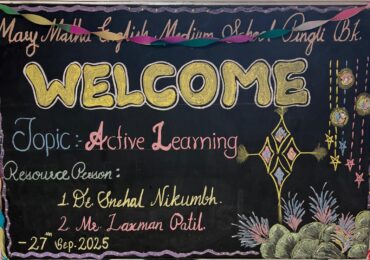 Mary Matha English Medium School Pingli Bk.
WELCOME
Topic :- Active Learning
Resource Person :
1. Dr. Snehal Nikumbh.
2. Mr. Laxman Patil.
- 27th Sep. 2025